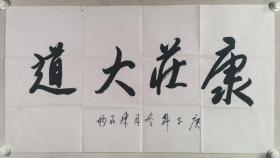 康莊大道
庚子年冬月陳